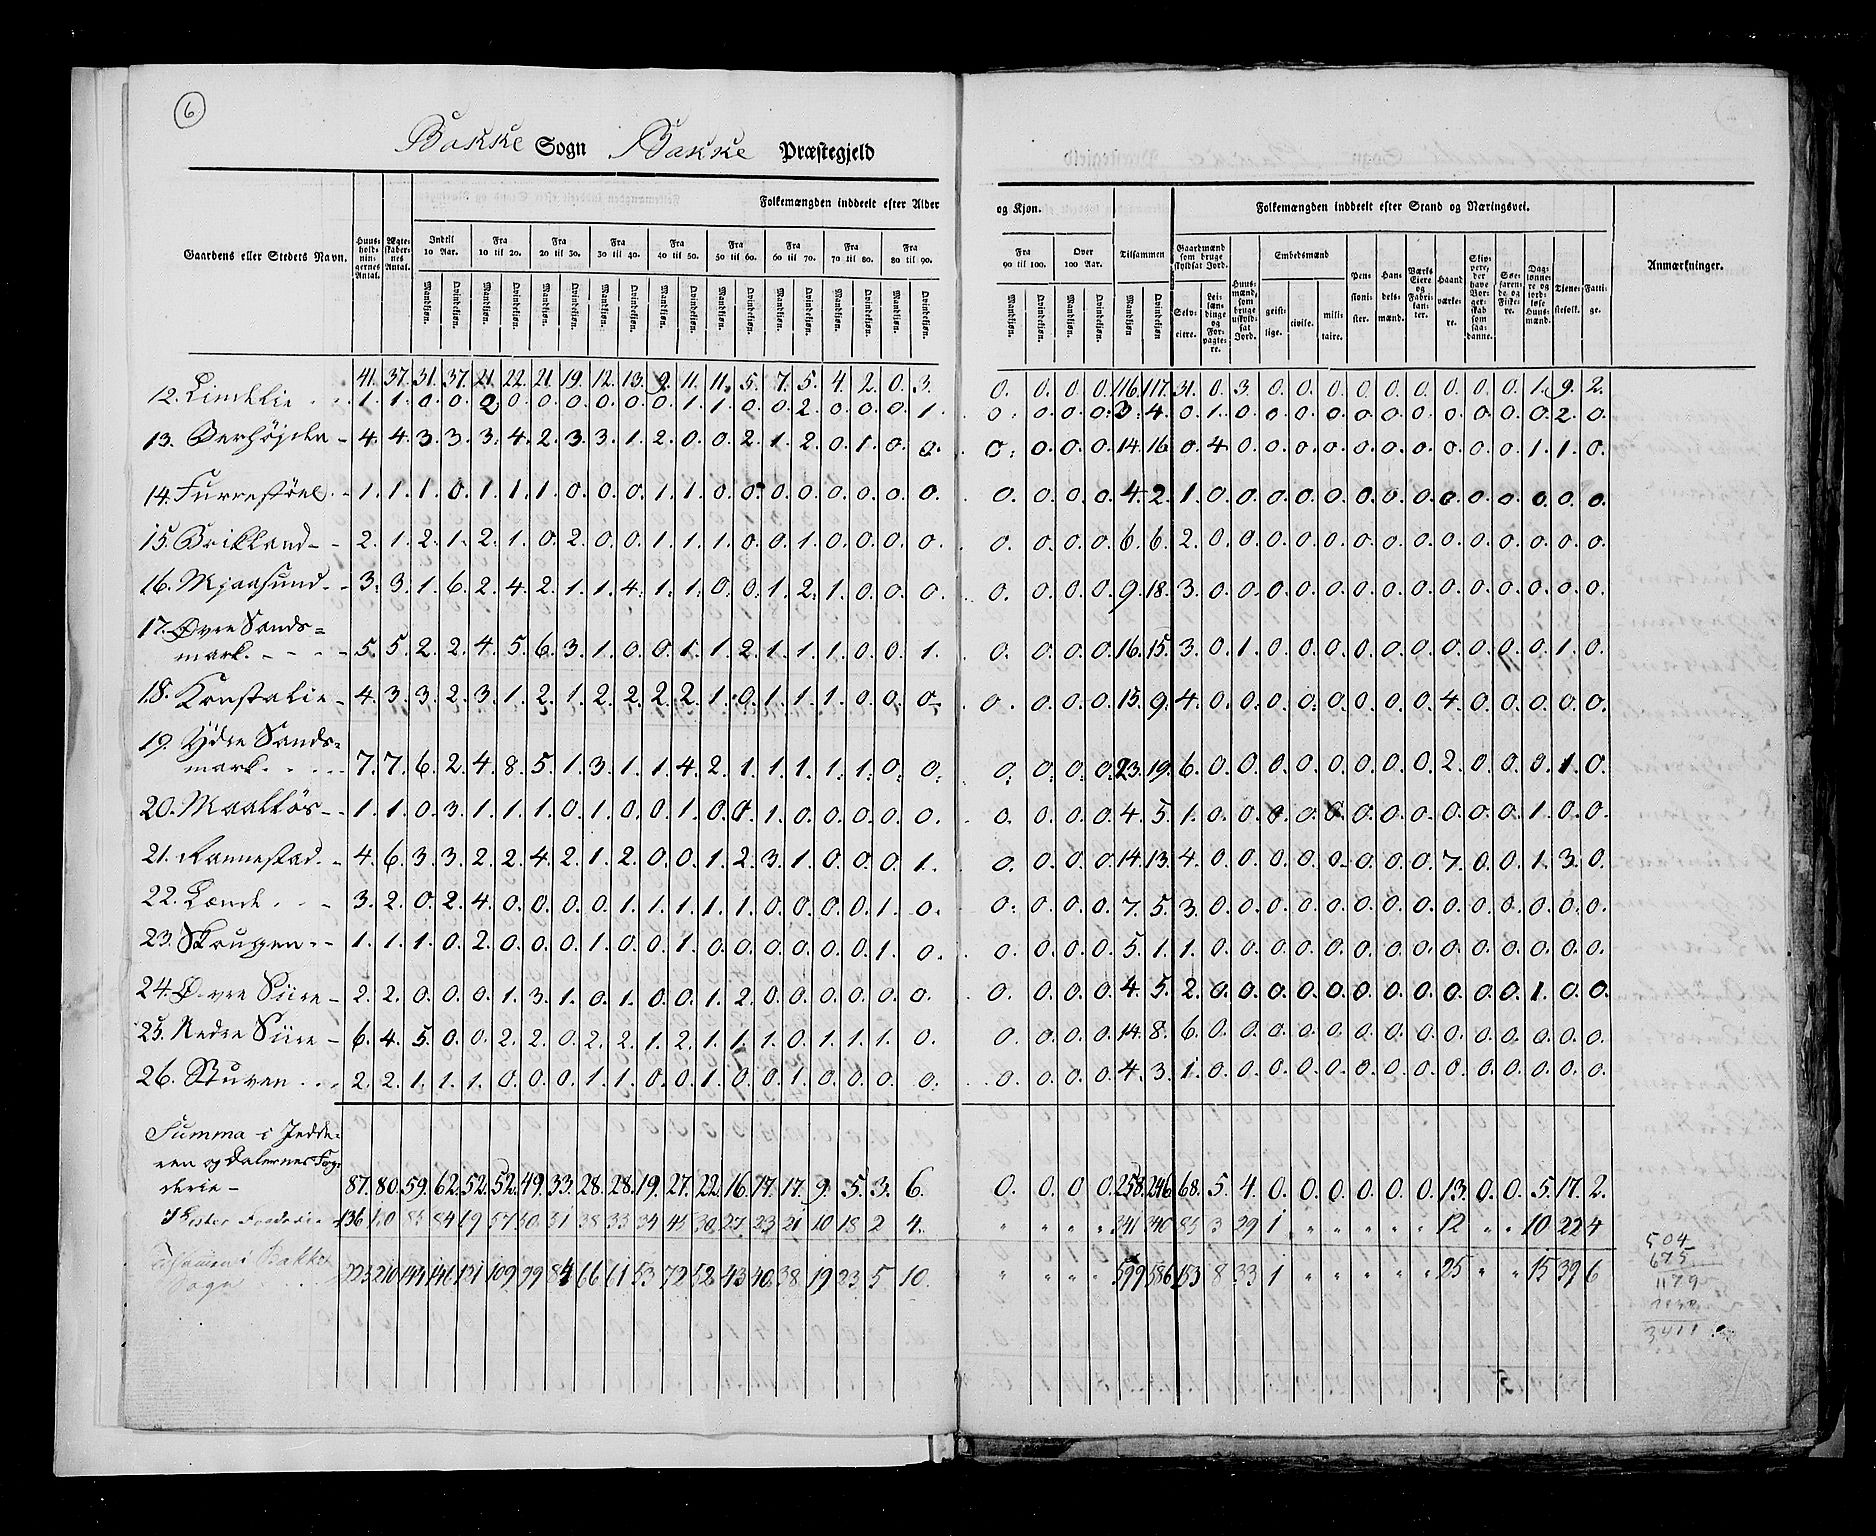 6
Bakke Sogn Bakke Præstegjeld
Folkemængden inddeelt efter Alder og Kjøn.
Folkemængden inddeelt efter Stand og Næringsvei.
Gaardens eller Stedets Navn. Huus-holdnin-gernes Antal. Ægte-skaber-nes Antal.
Indtil 10 Aar. Fra 10 til 20. Fra 20 til 30. Fra 30 til 40. Fra 40 til 50. Fra 50 til 60. Fra 60 til 70. Fra 70 til 80. Fra 80 til 90. Fra 90 til 100. Over 100 Aar. Tilsammen
Gaardmænd som bruge skyldsat Jord. Embedsmænd Anmærkninger.
Selv-eiere. Lei-lændinge og For-pagte-re. Huus-mænd, som bruge uskyld-sat Jord. geist-lige. civile. mili-taire. Pen-sioni-ster. Han-dels-mænd. Værks Eiere og Fabri-kan-ter. Haand værke-re. Skip-pere, der have Bor-ger-skab som saa-danne. Søe-faren-de og Fiske-re. Dag-lønne-re og jord-løse Huus-mænd. Tjene-stefolk. Fatti-ge.
Mandkjøn. Qvindekjøn. Mandkjøn. Qvindekjøn. Mandkjøn. Qvindekjøn. Mandkjøn. Qvindekjøn. Mandkjøn. Qvindekjøn. Mandkjøn. Qvindekjøn. Mandkjøn. Qvindekjøn. Mandkjøn. Qvindekjøn. Mandkjøn. Qvindekjøn. Mandkjøn. Qvindekjøn. Mandkjøn. Qvindekjøn. Mandkjøn Qvindekjøn.
41. 37. 31. 37. 21. 22. 21. 19. 12. 13. 9. 11. 11. 5. 7. 5. 4. 2. 0. 3. 0. 0. 0. 0. 116. 117. 31. 0. 3. 0. 0. 0. 0. 0. 0. 0. 0. 0. 1. 9. 2.
12. Lindelie 1. 1. 0. 0. 2 0. 0. 0. 0. 0. 0. 1. 1. 0. 0. 2. 0. 0. 0. 1. 0. 0. 0. 0. 3. 4. 0. 1. 0. 0. 0. 0. 0. 0. 0. 0. 0. 0. 0. 2. 0.
13. 4. 4. 3. 3. 3. 4. 2. 3. 3. 1. 2. 0. 0. 2. 1. 2. 0. 1. 0. 0. 0. 0. 0. 0. 14. 16. 0. 4. 0. 0. 0. 0. 0. 0. 0. 0. 0. 0. 1. 1. 0.
14. Furrestøel 1. 1. 1. 0. 1. 1. 1. 0. 0. 0. 1. 1. 0. 0. 0. 0. 0. 0. 0. 0. 0. 0. 0. 0. 4. 2. 1. 0. 0. 0. 0. 0. 0. 0. 0. 0. 0. 0. 0. 0. 0.
15. 2. 1. 2. 1. 2. 1. 0. 2. 0. 0. 1. 1. 1. 0. 0. 1. 0. 0. 0. 0. 0. 0. 0. 0. 6. 6. 2. 0. 0. 0. 0. 0. 0. 0. 0. 0. 0. 0. 0. 0. 0.
16. Mjaasund 3. 3. 1. 6. 2. 4. 2. 1. 1. 4. 1. 1. 0. 0. 1. 2. 1. 0. 0. 0. 0. 0. 0. 0. 9. 18. 3. 0. 0. 0. 0. 0. 0. 0. 0. 0. 0. 0. 0. 0. 0.
17. Øvre Sands=
mark. 5. 5. 2. 2. 4. 5. 6. 3. 1. 0. 0. 1. 1. 2. 1. 1. 1. 0. 0. 1. 0. 0. 0. 0. 16. 15. 3. 0. 1. 0. 0. 0. 0. 0. 0. 0. 0. 0. 0. 1. 0.
18. Konstalie 4. 3. 3. 2. 3. 1. 2. 1. 2. 2. 2. 2. 1. 0. 1. 1. 1. 0. 0. 0. 0. 0. 0. 0. 15. 9. 4. 0. 0. 0. 0. 0. 0. 0. 0. 4. 0. 0. 0. 0. 0.
19. Ydre Sands=
mark. 7. 7. 6. 2. 4. 8. 5. 1. 3. 1. 1. 4. 2. 1. 1. 1. 1. 1. 0. 0. 0. 0. 0. 0. 23. 19. 6. 0. 0. 0. 0. 0. 0. 0. 0. 2. 0. 0. 0. 1. 0.
20. 1. 1. 0. 3. 1. 1. 1. 0. 1. 0. 0. 1. 0. 0. 1. 0. 0. 0. 0. 0. 0. 0. 0. 0. 4. 5. 1. 0. 0. 0. 0. 0. 0. 0. 0. 0. 0. 0. 1. 0. 0.
21. Rannestad 4. 6. 3. 3. 2. 2. 4. 2. 1. 2. 0. 0. 1. 2. 3. 1. 0. 0. 0. 1. 0. 0. 0. 0. 14. 13. 4. 0. 0. 0. 0. 0. 0. 0. 0. 7. 0. 0. 1. 3. 0.
22. Lænde 3. 2. 0. 2. 4. 0. 0. 0. 0. 1. 1. 1. 1. 1. 0. 0. 0. 0. 1. 0. 0. 0. 0. 0. 7. 5. 3. 0. 0. 0. 0. 0. 0. 0. 0. 0. 0. 0. 0. 0. 0.
23. Skruppen 1. 1. 1. 0. 2. 0. 0. 0. 1. 0. 0. 1. 0. 0. 0. 0. 0. 0. 1. 0. 0. 0. 0. 0. 5. 1. 1. 0. 0. 0. 0. 0. 0. 0. 0. 0. 0. 0. 0. 0. 0.
24. Øvre Siire 2. 2. 0. 0. 0. 1. 3. 1. 0. 1. 0. 0. 1. 2. 0. 0. 0. 0. 0. 0. 0. 0. 0. 0. 4. 5. 2. 0. 0. 0. 0. 0. 0. 0. 0. 0. 0. 0. 1. 0. 0.
25. Nedre Siire 6. 4. 5. 0. 0. 2. 2. 0. 2. 2. 1. 2. 1. 1. 1. 0. 1. 1. 1. 0. 0. 0. 0. 0. 14. 8. 6. 0. 0. 0. 0. 0. 0. 0. 0. 0. 0. 0. 0. 0. 0.
26. Stuven 2. 2. 1. 1. 1. 0. 0. 0. 1. 1. 0. 0. 1. 0. 0. 1. 0. 0. 0. 0. 0. 0. 0. 0. 4. 3. 1. 0. 0. 0. 0. 0. 0. 0. 0. 0. 0. 0. 0. 0. 0.
Summa i Jedde-
ren og Dalernes Fog-
derie 87. 80. 59. 62. 52. 52. 49. 33. 28. 28. 19. 27. 22. 16. 17. 17. 9. 5. 3. 6. 0. 0. 0 0. 258. 246. 68. 5. 4. 0. 0. 0. 0. 0. 0. 13. 0. 0. 5. 17. 2.
I Lister Fogderie 136 130 85 84 69 57 50 51 38 33 34 45 30 27 23 21 10 18 2 4. " " " " 341 340 85 3 29 1 " " " " " 12 " " 10 22 4
Tilsammen i Bakke
Sogn 223 210 144 146 121 109 99 84 66 61 53 72 52 43 40 38 19 23 5 10. " " " " 599 586 153 8 33 1 " " " " " 25 " " 15 39 6
504
675
1179
3411